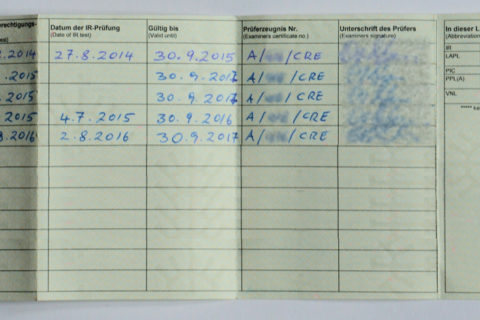 erechtigungs- Datum der IR-Prüfung Gültig bis Prüferzeugnis Nr. Unterschrift des Prüfers In dieser L
(Date of IR test) (Valid until) (Examiners certificate no.) (Examiners signature) (Abbreviation
IR
.2014 27.8.2014 30.9.2015 A/ /CRE LAPL
.2015 30.9.2017 A/ /CRE PIC
PPL(A)
.2015 30.9.2017 A/ /CRE VNL
.2015 4.7.2015 30.9.2016 A/ /CRE ***** ke
.2016 2.8.2016 30.9.2017 A/ /CRE